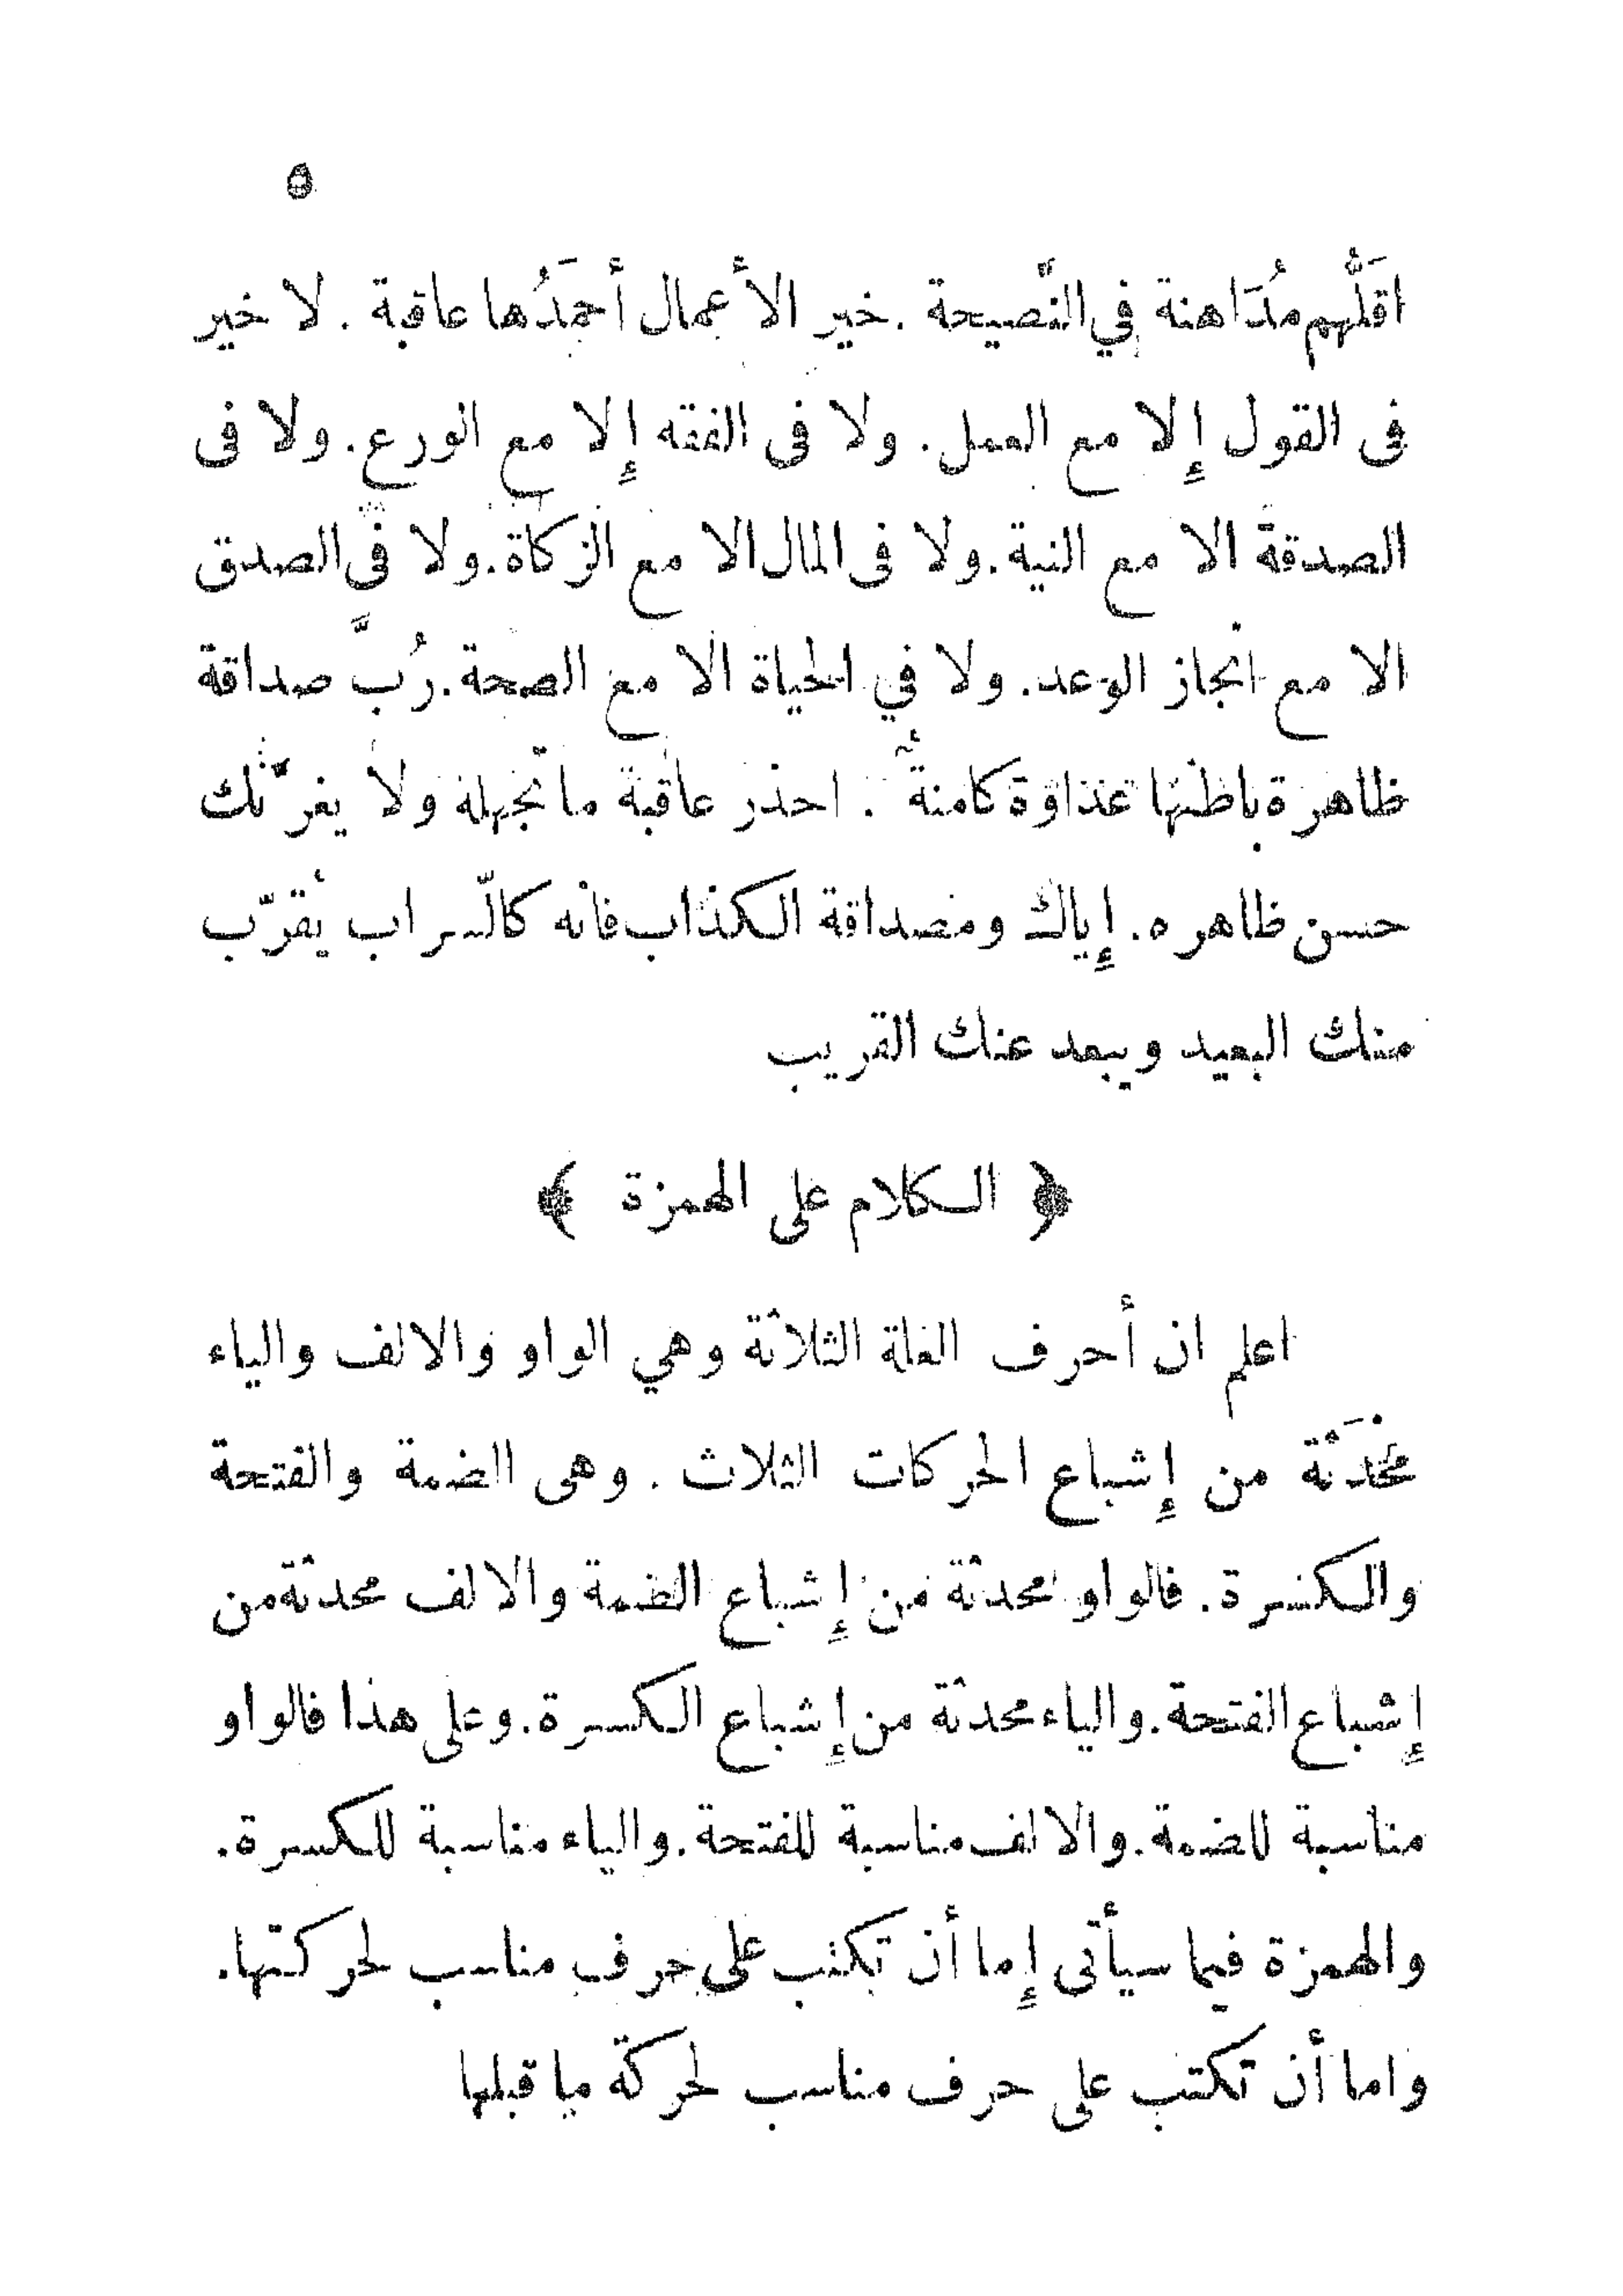 ٥
اقَلُّهم مُدَاهنة في النَّصيحة . خير الأعمال أحمَدُها عاقبة . لا خير
فى القول إلا مع العمل . ولا فى الفقه إلا مع الورع . ولا فى
الصدقة الا مع النية . ولا فى المال الا مع الزكاة . ولا فى الصدق
الا مع انجاز الوعد . ولا في الحياة الا مع الصحة . رُبَّ صداقة
ظاهرة باطنها عداوة كامنةٌ . احذر عاقبة ما تجهله ولا يغرّنك
حسن ظاهره . إياك ومصداقة الكذاب فانه كالسّراب يُقرّب
منك البعيد ويبعد عنك القريب
﴿ الكلام على الهمزة ﴾
اعلم ان أحرف العلة الثلاثة وهي الواو والالف والياء
مُحْدَثة من إشباع الحركات الثلاث . وهى الضمة والفتحة
والكسرة . فالواو محدثة من إشباع الضمة والالف محدثة من
إشباع الفتحة . والياء محدثة من إشباع الكسرة . وعلى هذا فالواو
مناسبة للضمة . والالف مناسبة للفتحة . والياء مناسبة للكسرة .
والهمزة فيما سيأتى إما أن تكتب على حرف مناسب لحركتها .
واما أن تكتب على حرف مناسب لحركة ما قبلها